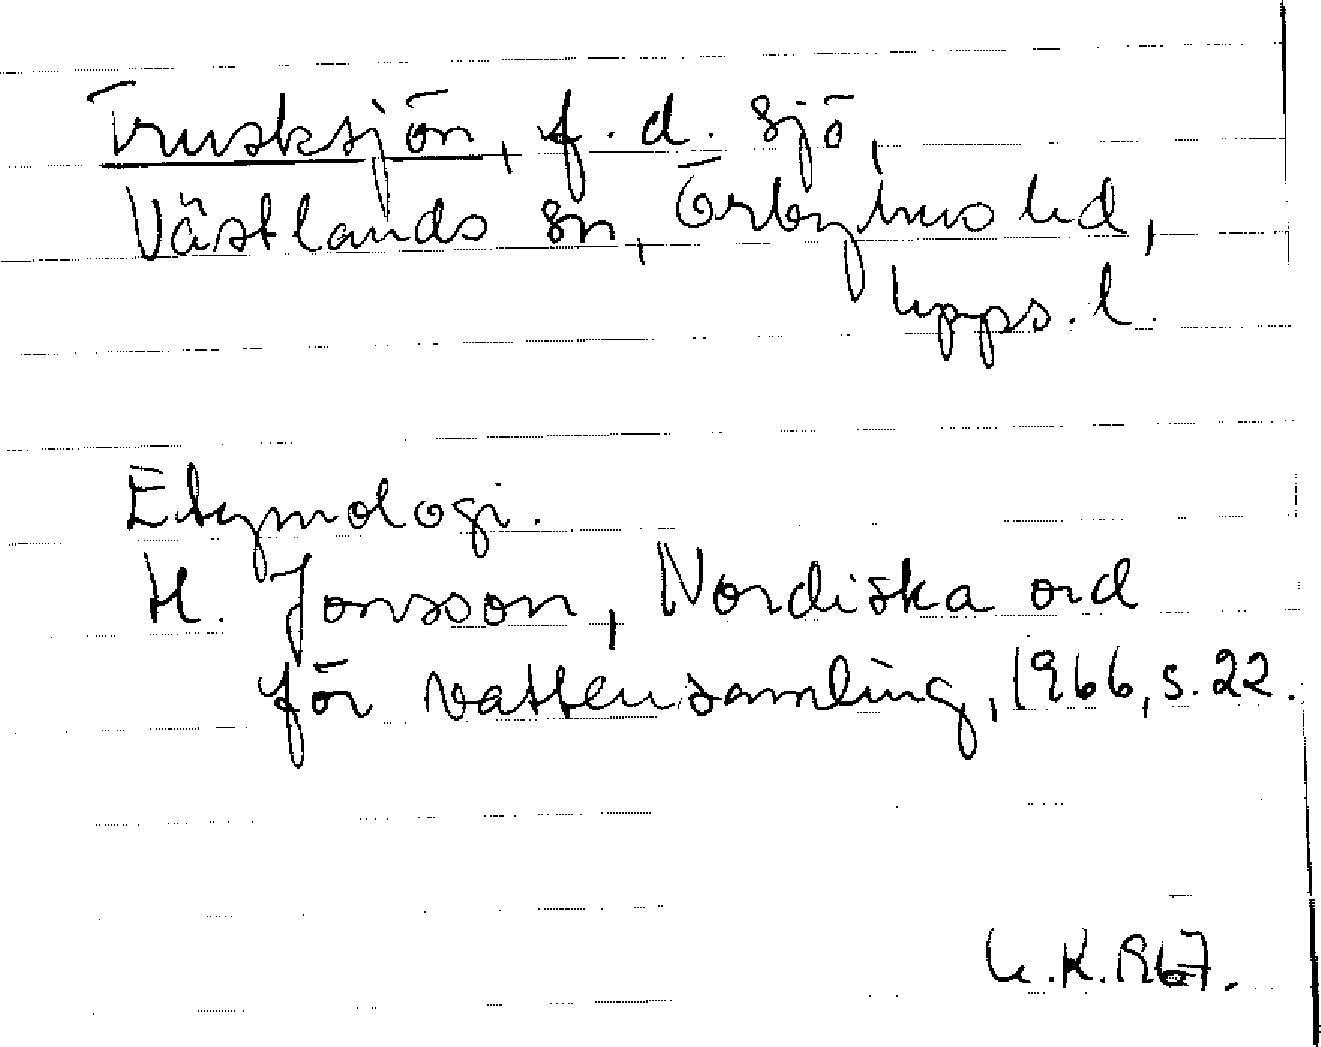 Trusksjön, f.d. sjö,
Västlands sn, Örbyhus hd,
Upps.l.
Etymologi.
H. Jonsson, Nordiska ord
för vattensamling, 1966, s.22.